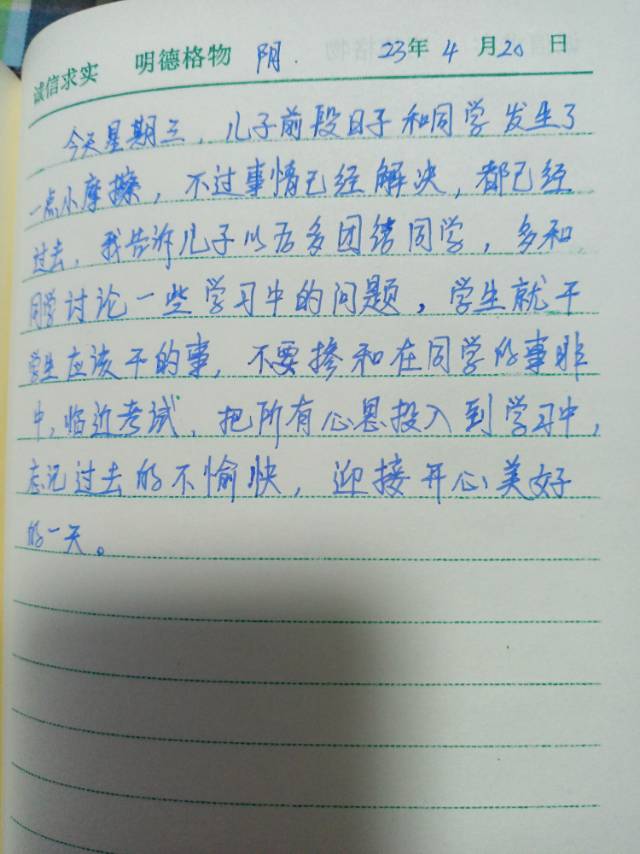 诚信求实 明德格物 阴. 23年4月20日
今天星期三，儿子前段日子和同学发生了
一点小摩擦，不过事情已经解决，都已经
过去，我告诉儿子以后多团结同学，多和
同学讨论一些学习中的问题，学生就干
学生应该干的事，不要掺和在同学的事非
中，临近考试，把所有心思投入到学习中，
忘记过去的不愉快，迎接开心美好
的一天。